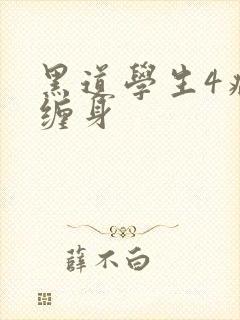 黑道學生4
缠身
薛不白